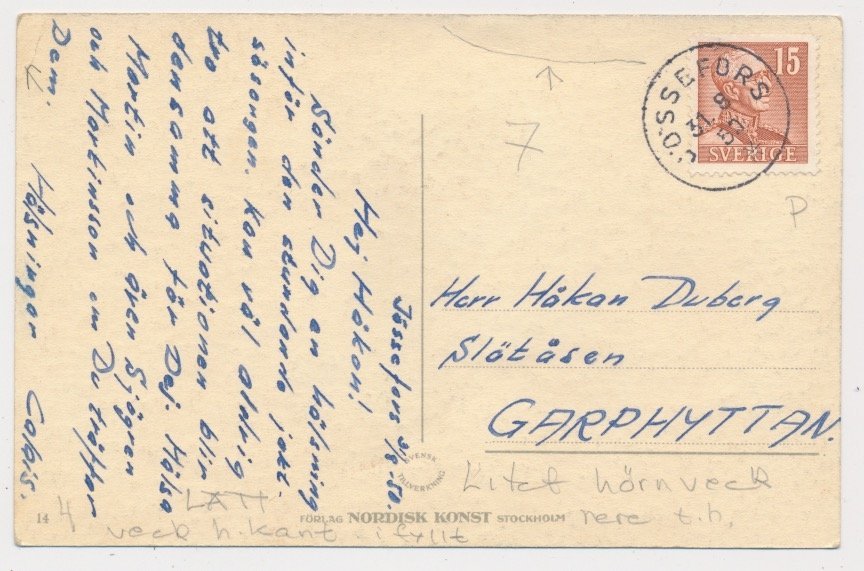 Jössefors 31/8-50.
Hej Håkan!
Sänder Dig en hälsning
inför den stundande jakt-
säsongen. Kan väl aldrig
tro att situationen blir
densamma för Dej. Hälsa
Martin och även Sjögren
och Martinsson om Du träffar
Dem.
Hälsningar
JÖSSEFORS
31.8
50
15
SVERIGE
7
P
Herr Håkan Duberg
Slätåsen
GARPHYTTAN.
Litet hörnveck
nere t.h.
SVENSK
TILLVERKNING
LÄTT
veck h.kant ifyllt
14
4
FÖRLAG NORDISK KONST STOCKHOLM